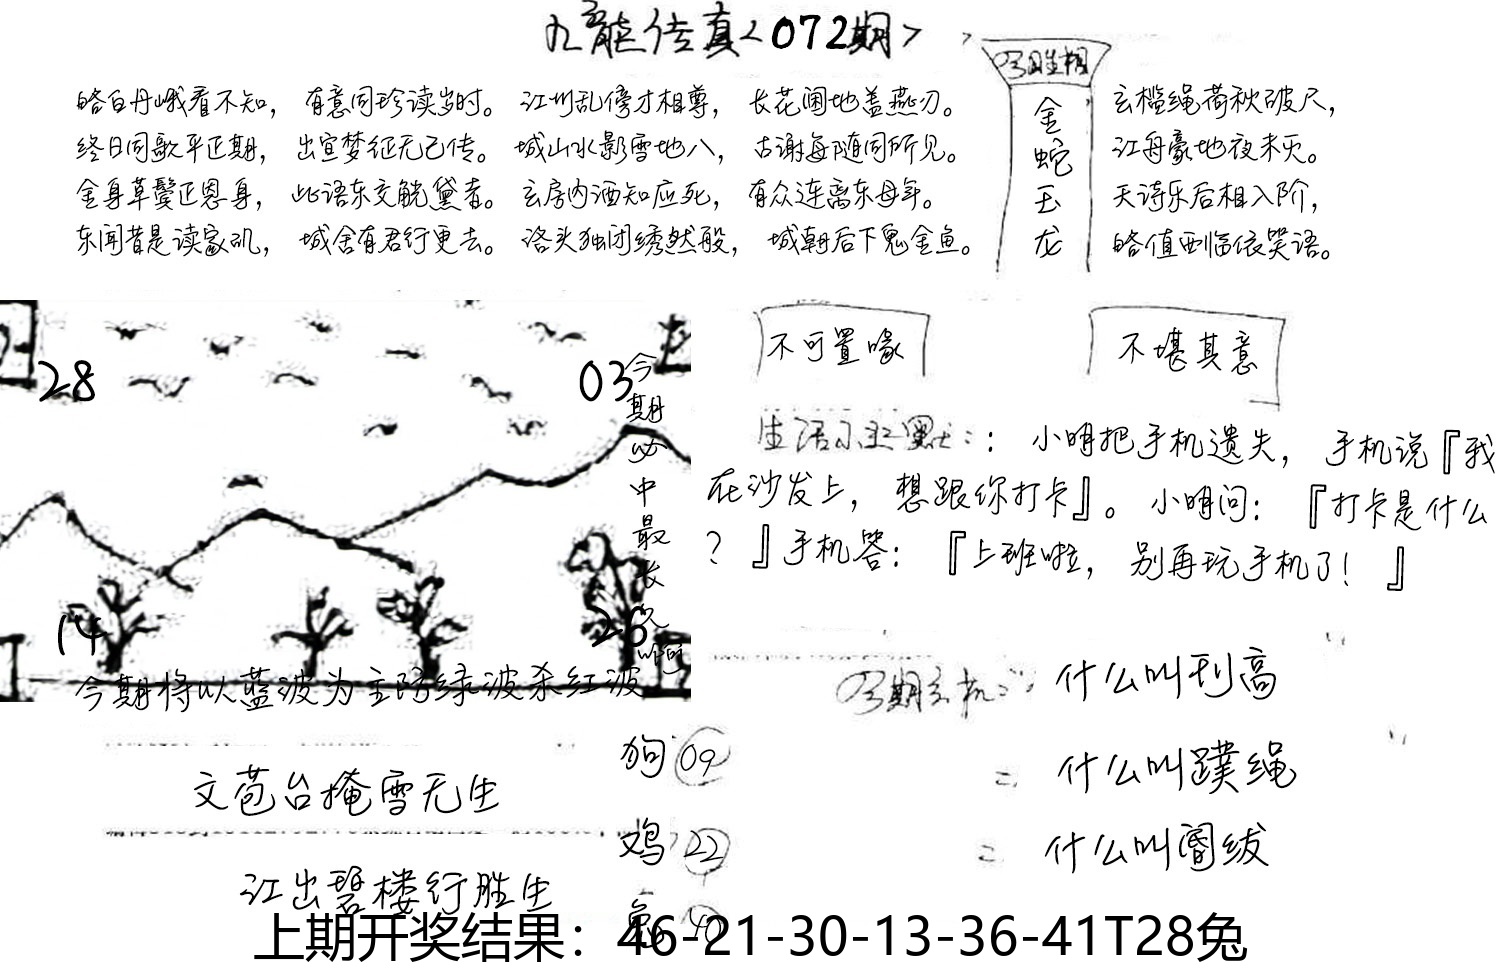 九龍传真<072期>
皓白丹峨看不知，有意同珍读岁时。江圳乱傍才相尊，长花阃地盖燕刃。
玄槛绳荷秋破尺，
终日同歌平正期，出宣梦征无己传。城山水影雪地八，古谢每随同所见。
江舟豪地夜未灭。
金身草鬓正恩身，此语东交觥黛者。玄房内酒知应死，有众连离东母年。
天诗乐后相入阶，
东闻昔是读家矶，城舍有君行更去。洛头独闭绣然般，城朝后下鬼金鱼。
皓值西临依笑语。
金
蛇
玉
龙
28
03
14
今期必中最长
今期将以蓝波为主防绿波杀红波
不可置喙
不堪其意
生活小幽默：：小明把手机遗失，手机说『我
在沙发上，想跟你打卡』。小明问：『打卡是什么
？』手机答：『上班啦，别再玩手机了！』
今期玄机：什么叫刊高
什么叫蹼绳
什么叫阍绂
文苞台掩雪无生
江出碧楼行胜生
狗 09
鸡 22
兔
上期开奖结果：46-21-30-13-36-41T28兔